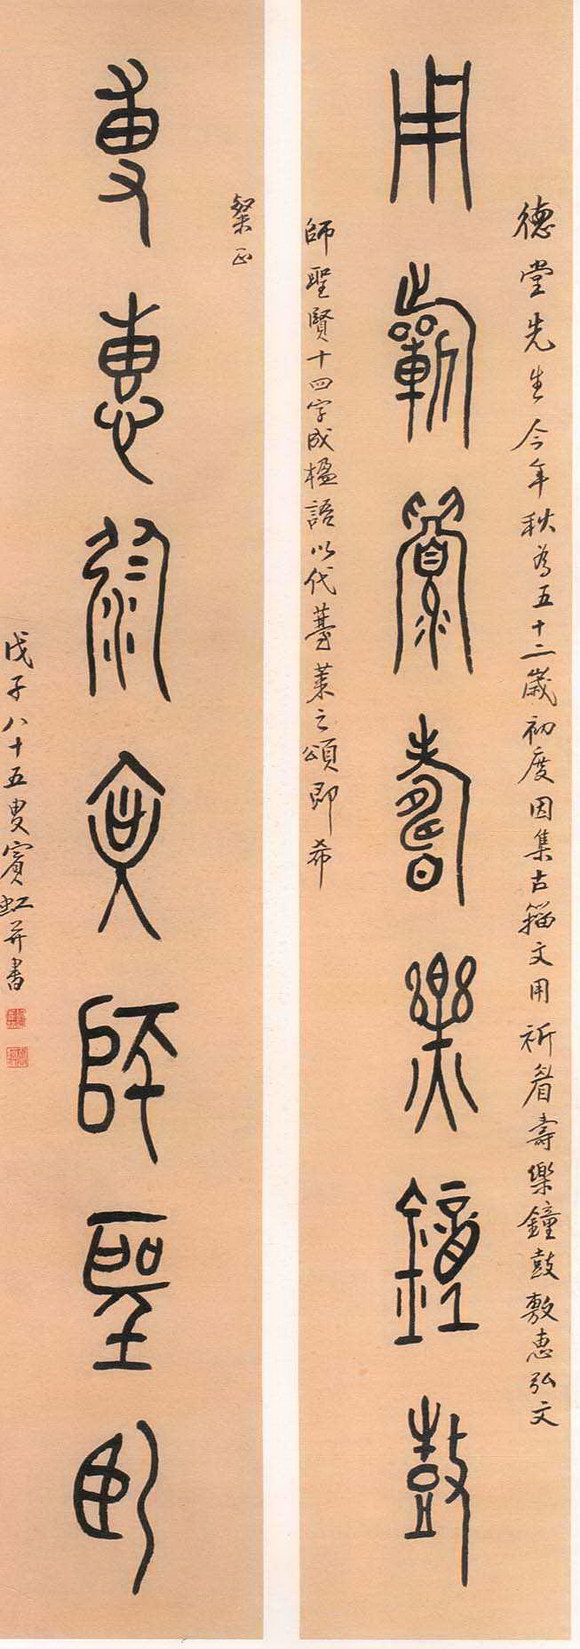 德堂先生今年秋為五十二歲初度因集古籀文用祈眉壽樂鐘鼓敷惠弘文
用祈眉壽樂鐘鼓
師聖賢十四字成楹語以代薹萊之頌即希
粲正
敷惠弘文師聖賢
戊子八十五叟賓虹并書